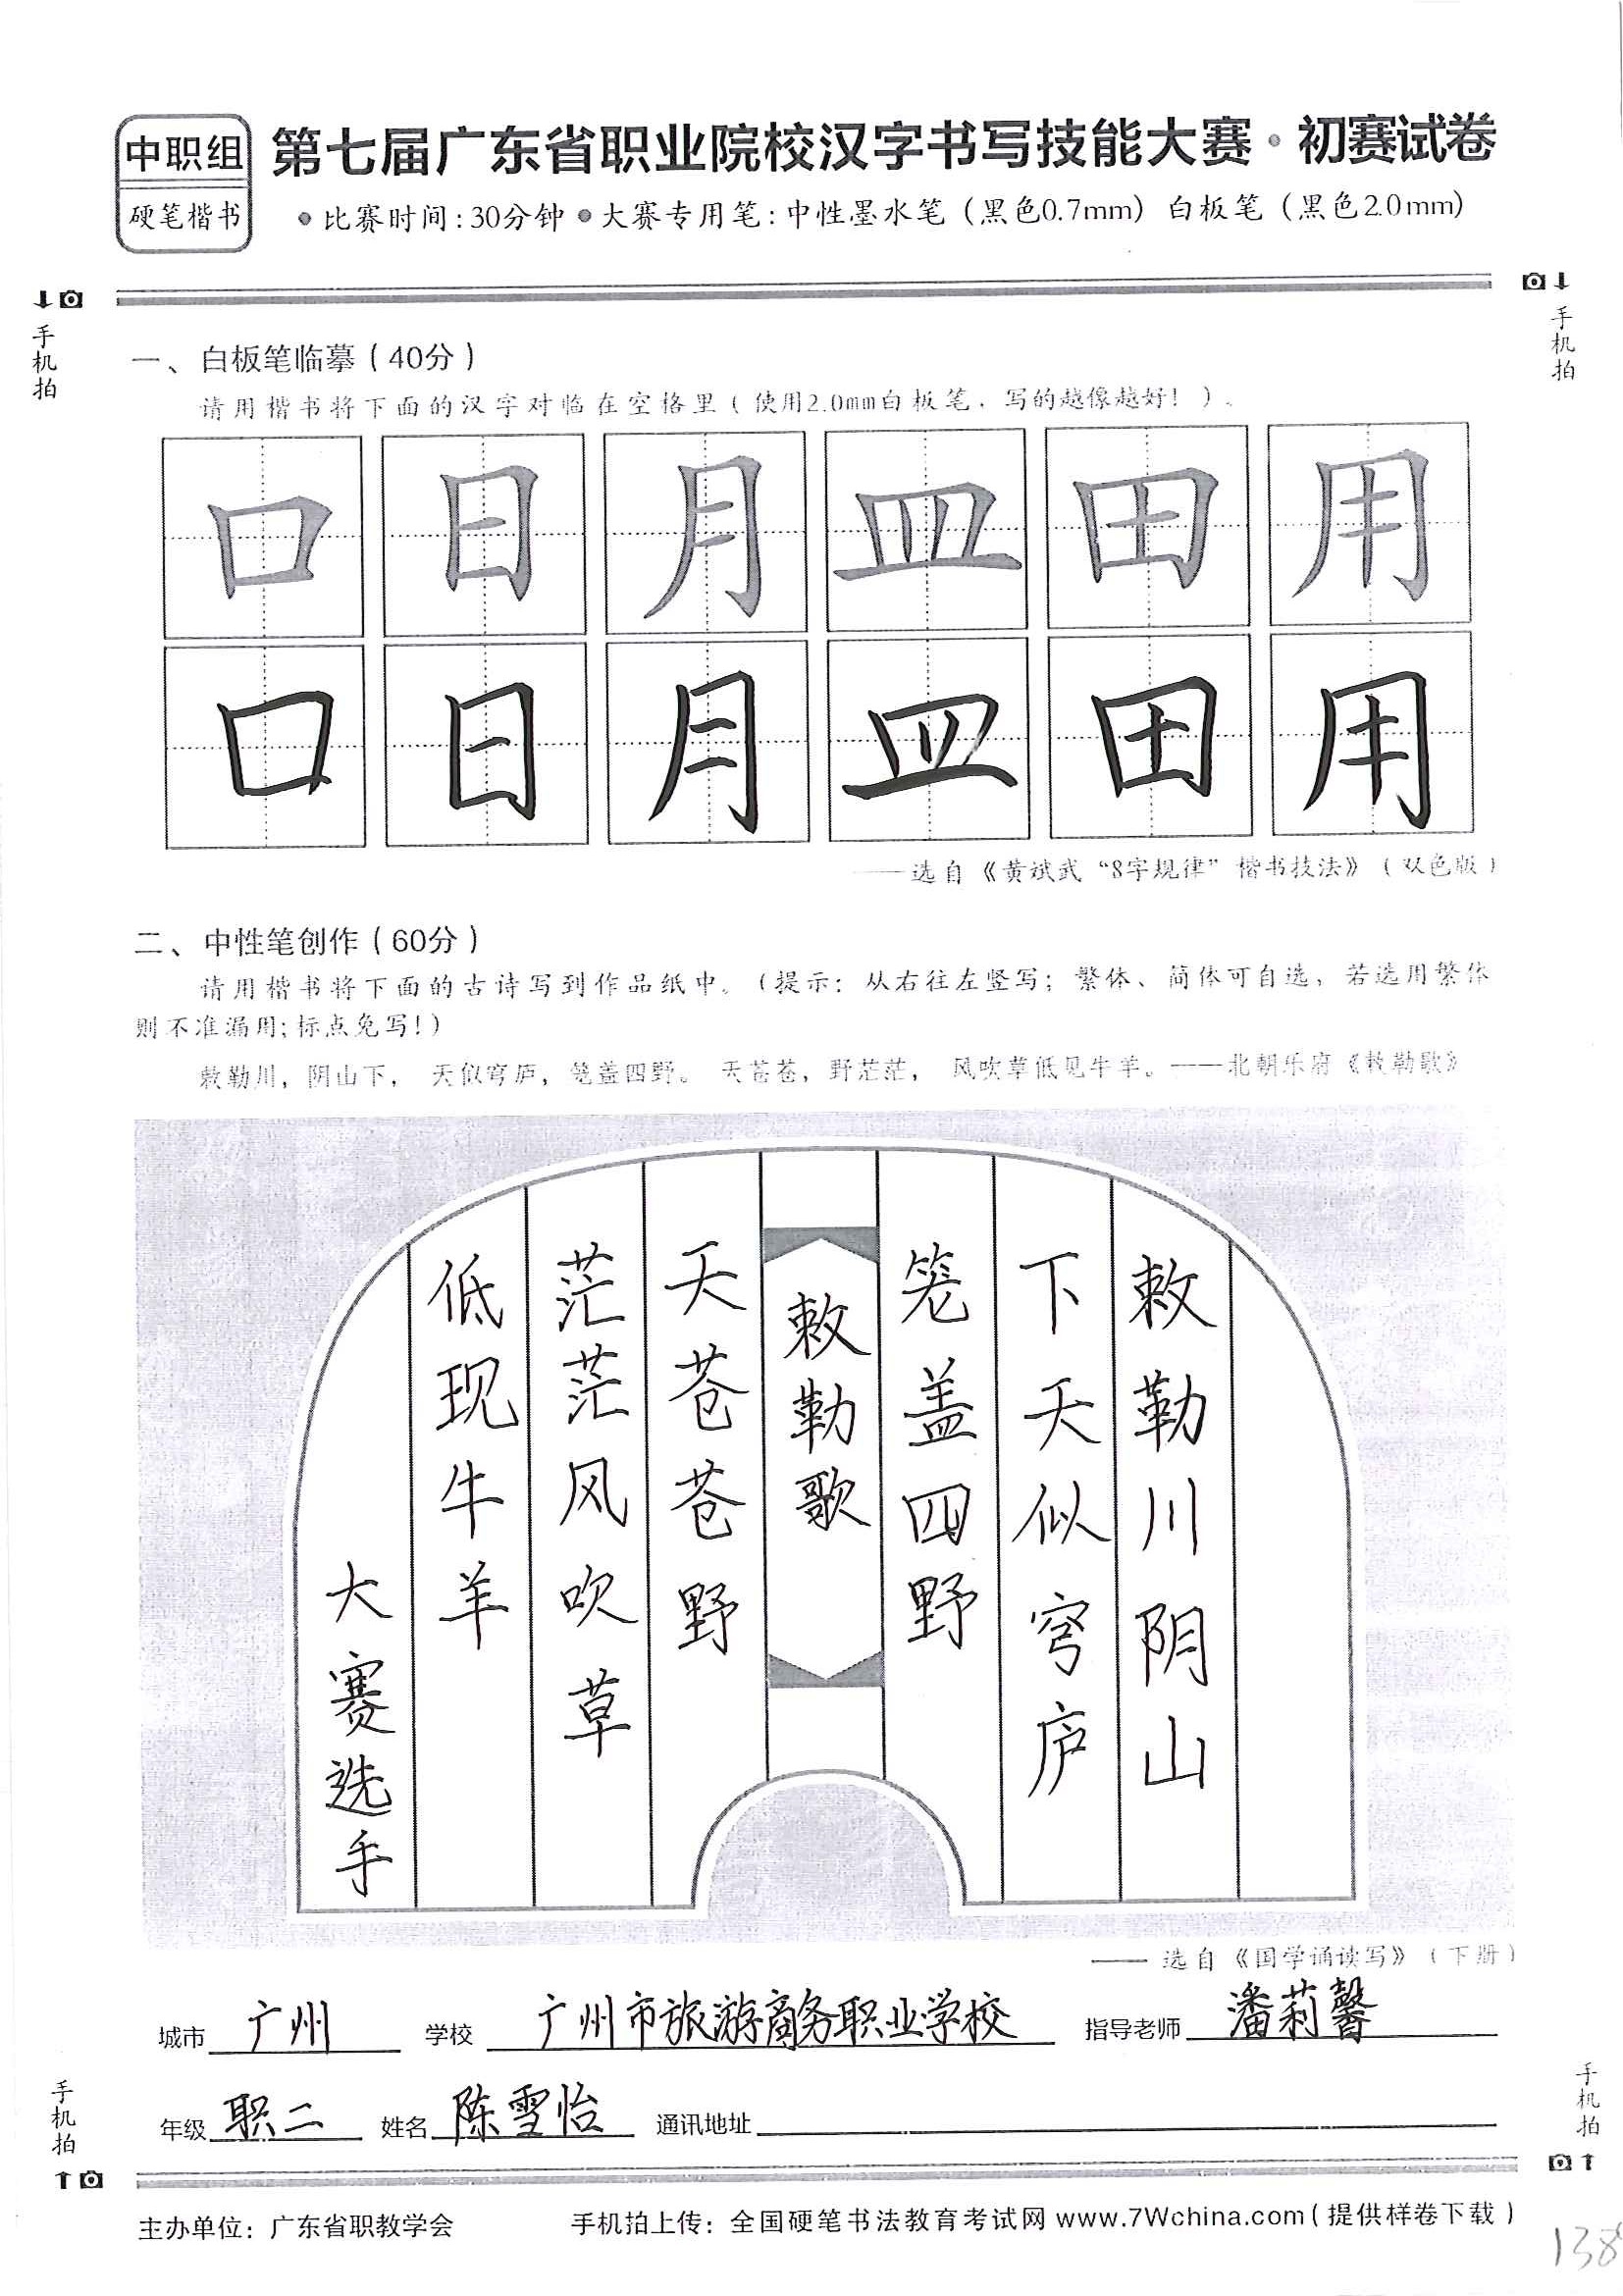 中职组
硬笔楷书
第七届广东省职业院校汉字书写技能大赛·初赛试卷
●比赛时间:30分钟●大赛专用笔:中性墨水笔（黑色0.7mm）白板笔（黑色2.0mm）
手机拍
手机拍
一、白板笔临摹（40分）
请用楷书将下面的汉字对临在空格里（使用2.0mm白板笔，写的越像越好！）。
口 日 月 皿 田 用
口 日 月 皿 田 用
——选自《黄斌武“8字规律”楷书技法》（双色版）
二、中性笔创作（60分）
请用楷书将下面的古诗写到作品纸中。（提示：从右往左竖写；繁体、简体可自选，若选用繁体
则不准漏用；标点免写！）
敕勒川，阴山下，天似穹庐，笼盖四野。天苍苍，野茫茫，风吹草低见牛羊。——北朝乐府《敕勒歌》
敕勒川阴山
下天似穹庐
笼盖四野
敕勒歌
天苍苍野
茫茫风吹草
低现牛羊
大赛选手
——选自《国学诵读写》（下册）
城市 广州 学校 广州市旅游商务职业学校 指导老师 潘莉馨
年级 职二 姓名 陈雪怡 通讯地址
手机拍
手机拍
主办单位：广东省职教学会 手机拍上传：全国硬笔书法教育考试网 www.7Wchina.com（提供样卷下载）
138